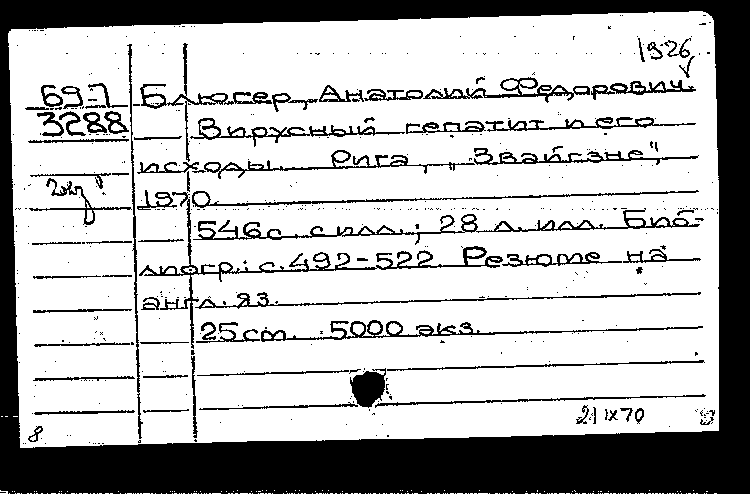 1926
69-7 Блюгер, Анатолий Федорович.
3288 Вирусный гепатит и его
исходы. Рига, „Звайгзне",
2 экз
1970.
546 с. с илл.; 28 л. илл. Биб-
лиогр.: с. 492-522. Резюме на
англ. яз.
25 cm. 5000 экз.
21 IX 70
8